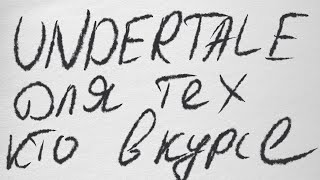 UNDERTALE
для тех
кто в курсе